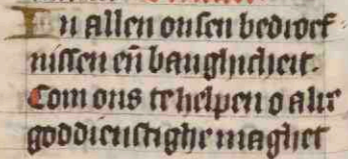 In allen onsen bedroef
nissen eñ banghicheit.
Com ons te helpen o alre
goddienstighe maghet